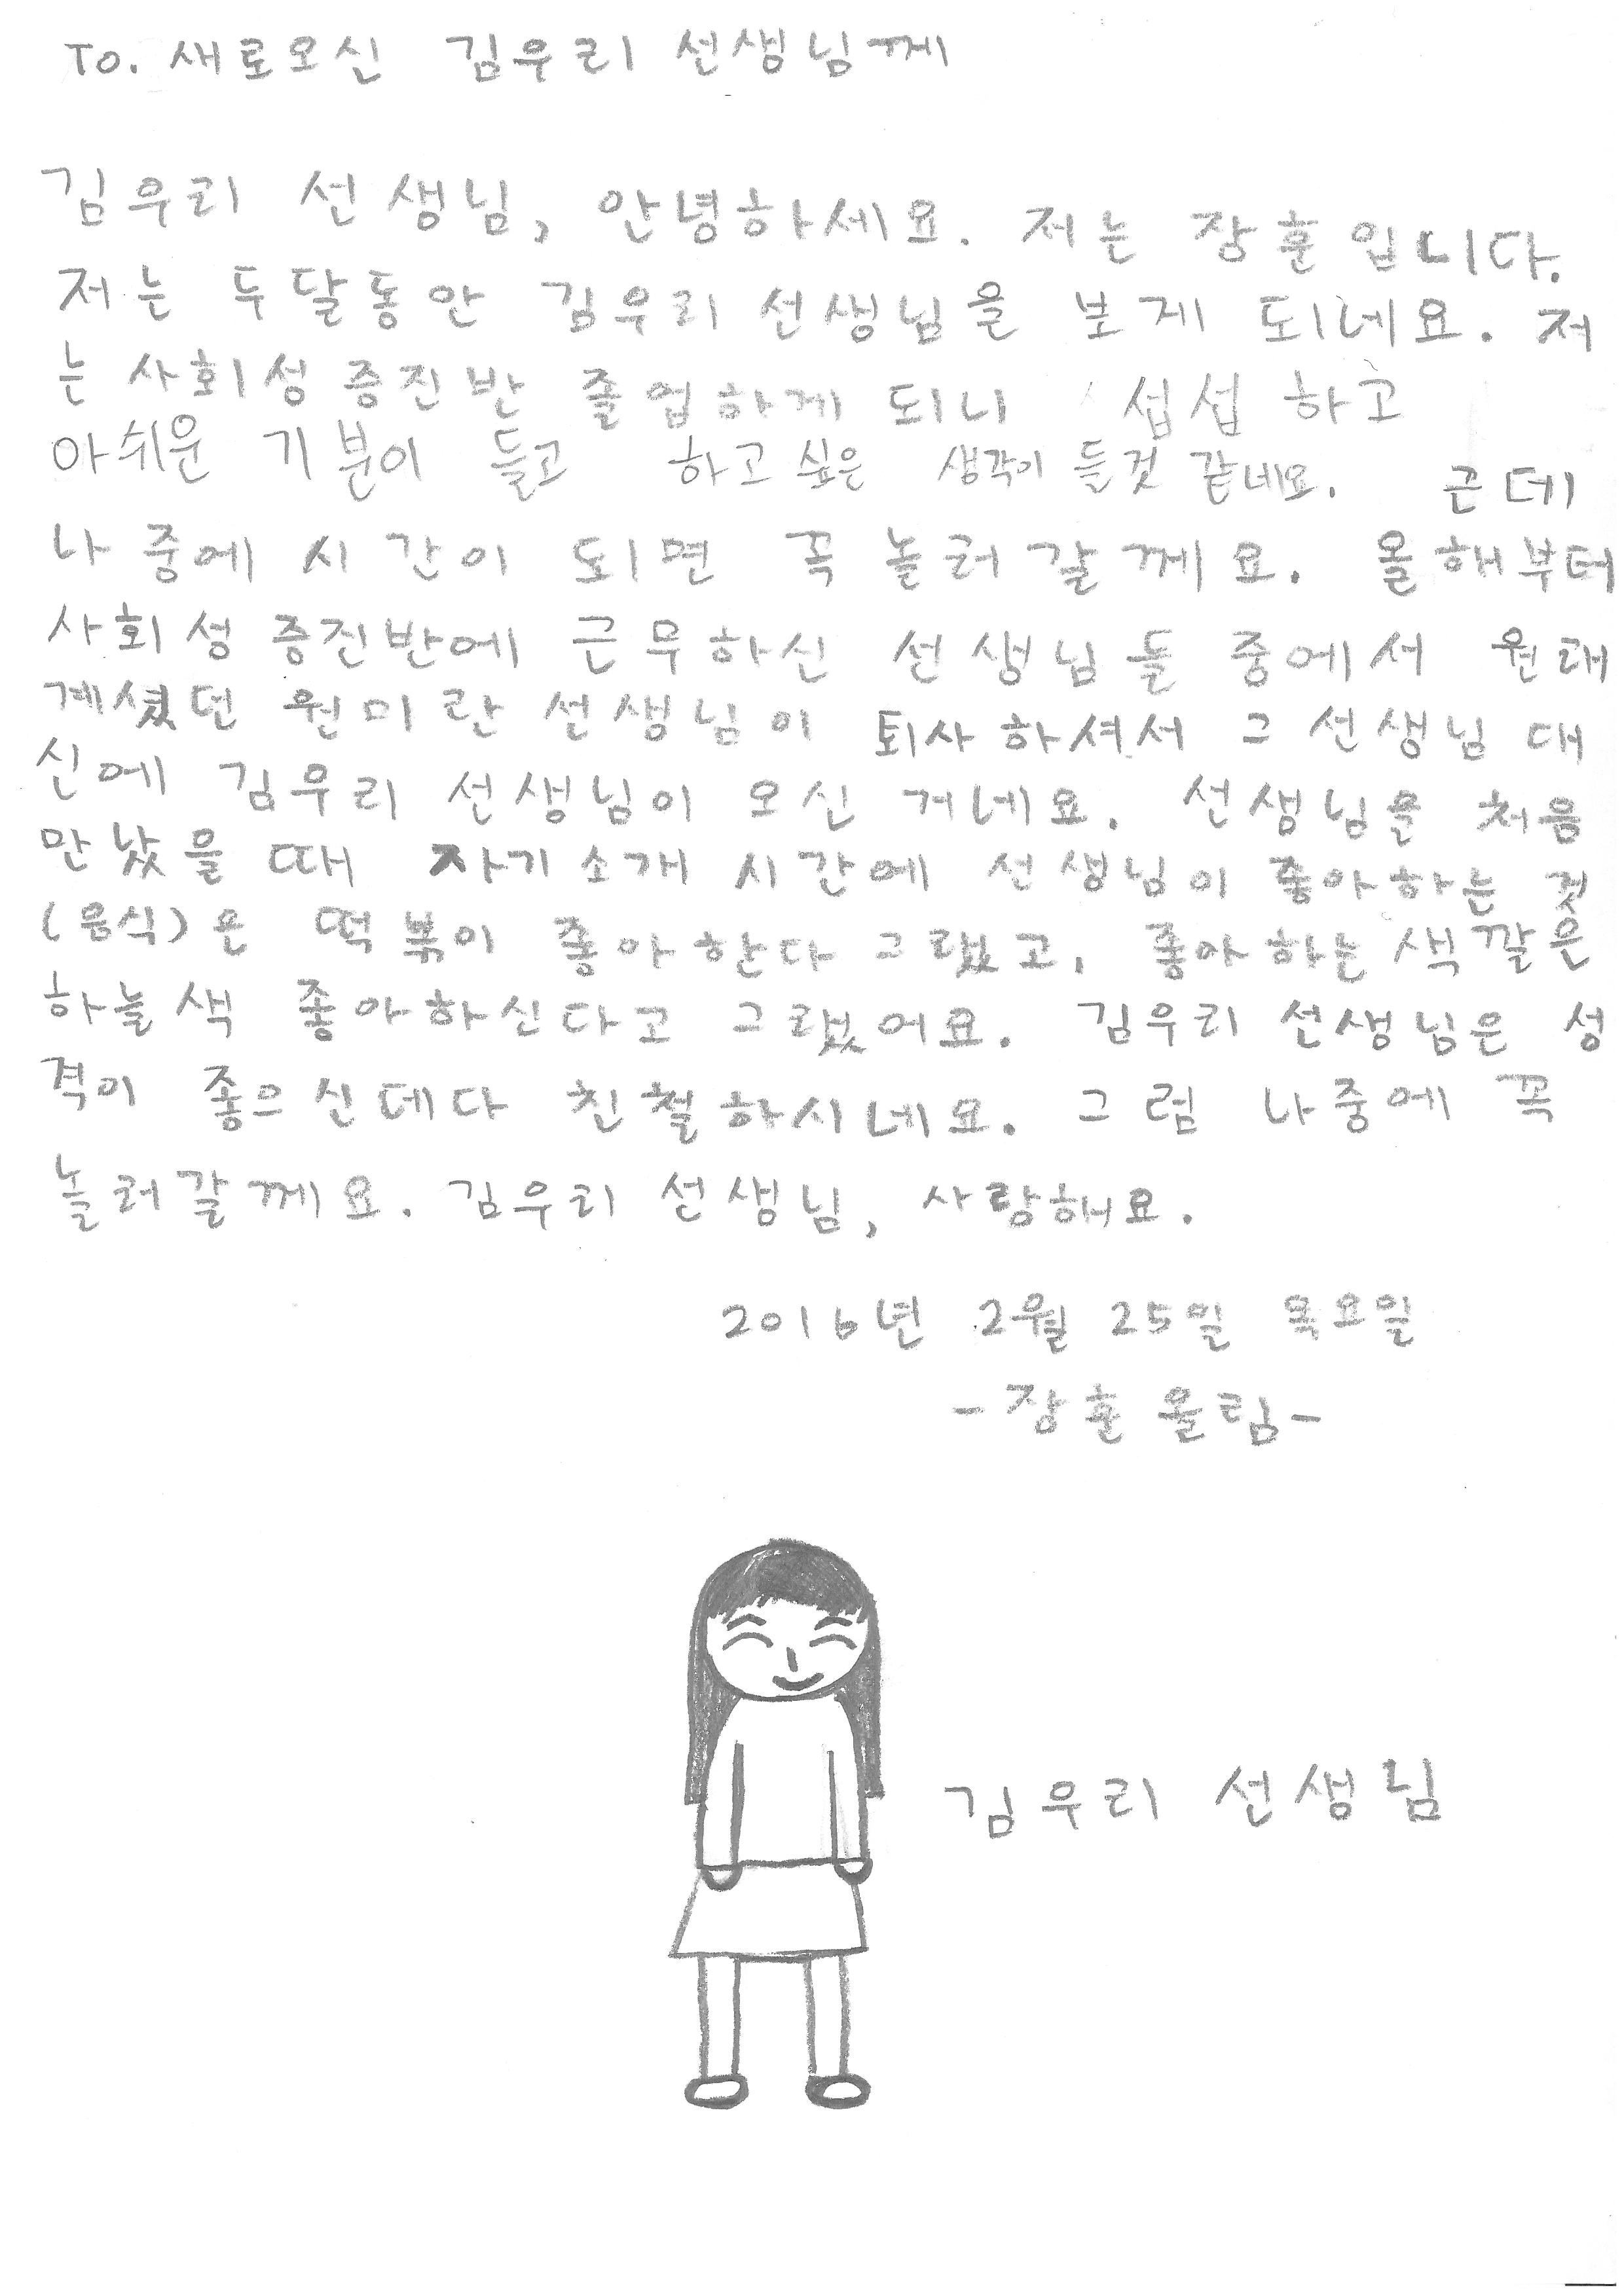 To. 새로오신 김우리 선생님께
김우리 선생님, 안녕하세요. 저는 장훈입니다.
저는 두달동안 김우리 선생님을 보게 되네요. 저
는 사회성증진반 졸업하게 되니 섭섭하고
아쉬운 기분이 들고 하고싶은 생각이 들것 같네요. 근데
나중에 시간이 되면 꼭 놀러갈께요. 올해부터
사회성증진반에 근무하신 선생님들 중에서 원래
계셨던 원미란 선생님이 퇴사하셔서 그 선생님 대
신에 김우리 선생님이 오신 거네요. 선생님을 처음
만났을 때 자기소개 시간에 선생님이 좋아하는 것
(음식)은 떡볶이 좋아한다 그랬고, 좋아하는 색깔은
하늘색 좋아하신다고 그랬어요. 김우리 선생님은 성
격이 좋으신데다 친철하시네요. 그럼 나중에 꼭
놀러갈께요. 김우리 선생님, 사랑해요.
2016년 2월 25일 목요일
-장훈 올림-
김우리 선생님